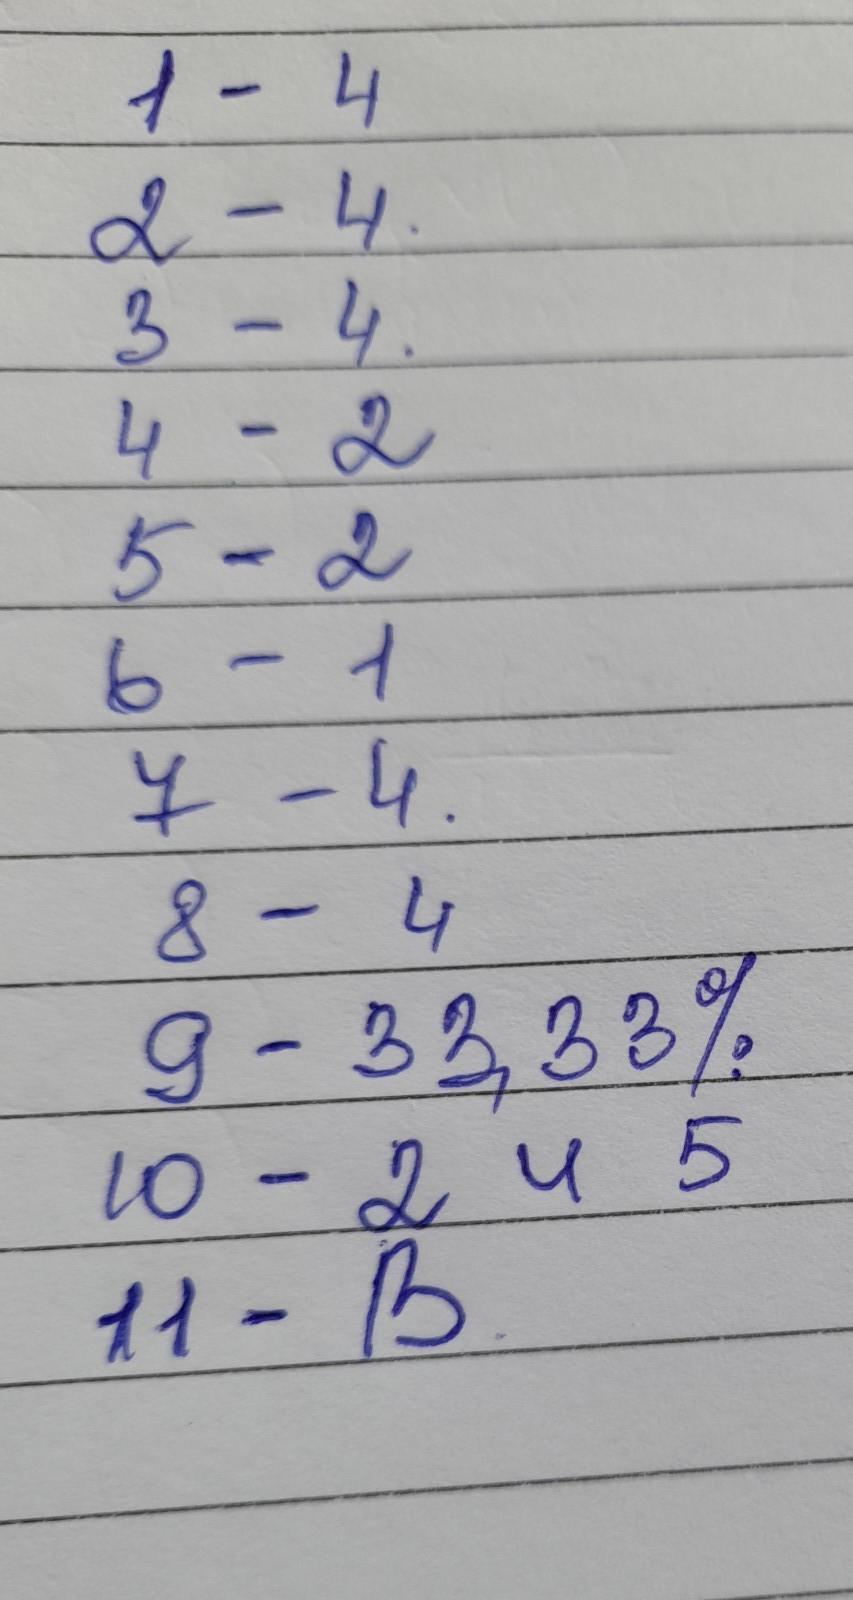 1 - 4
2 - 4.
3 - 4.
4 - 2
5 - 2
6 - 1
7 - 4.
8 - 4
9 - 33,33%
10 - 2 и 5
11 - В.